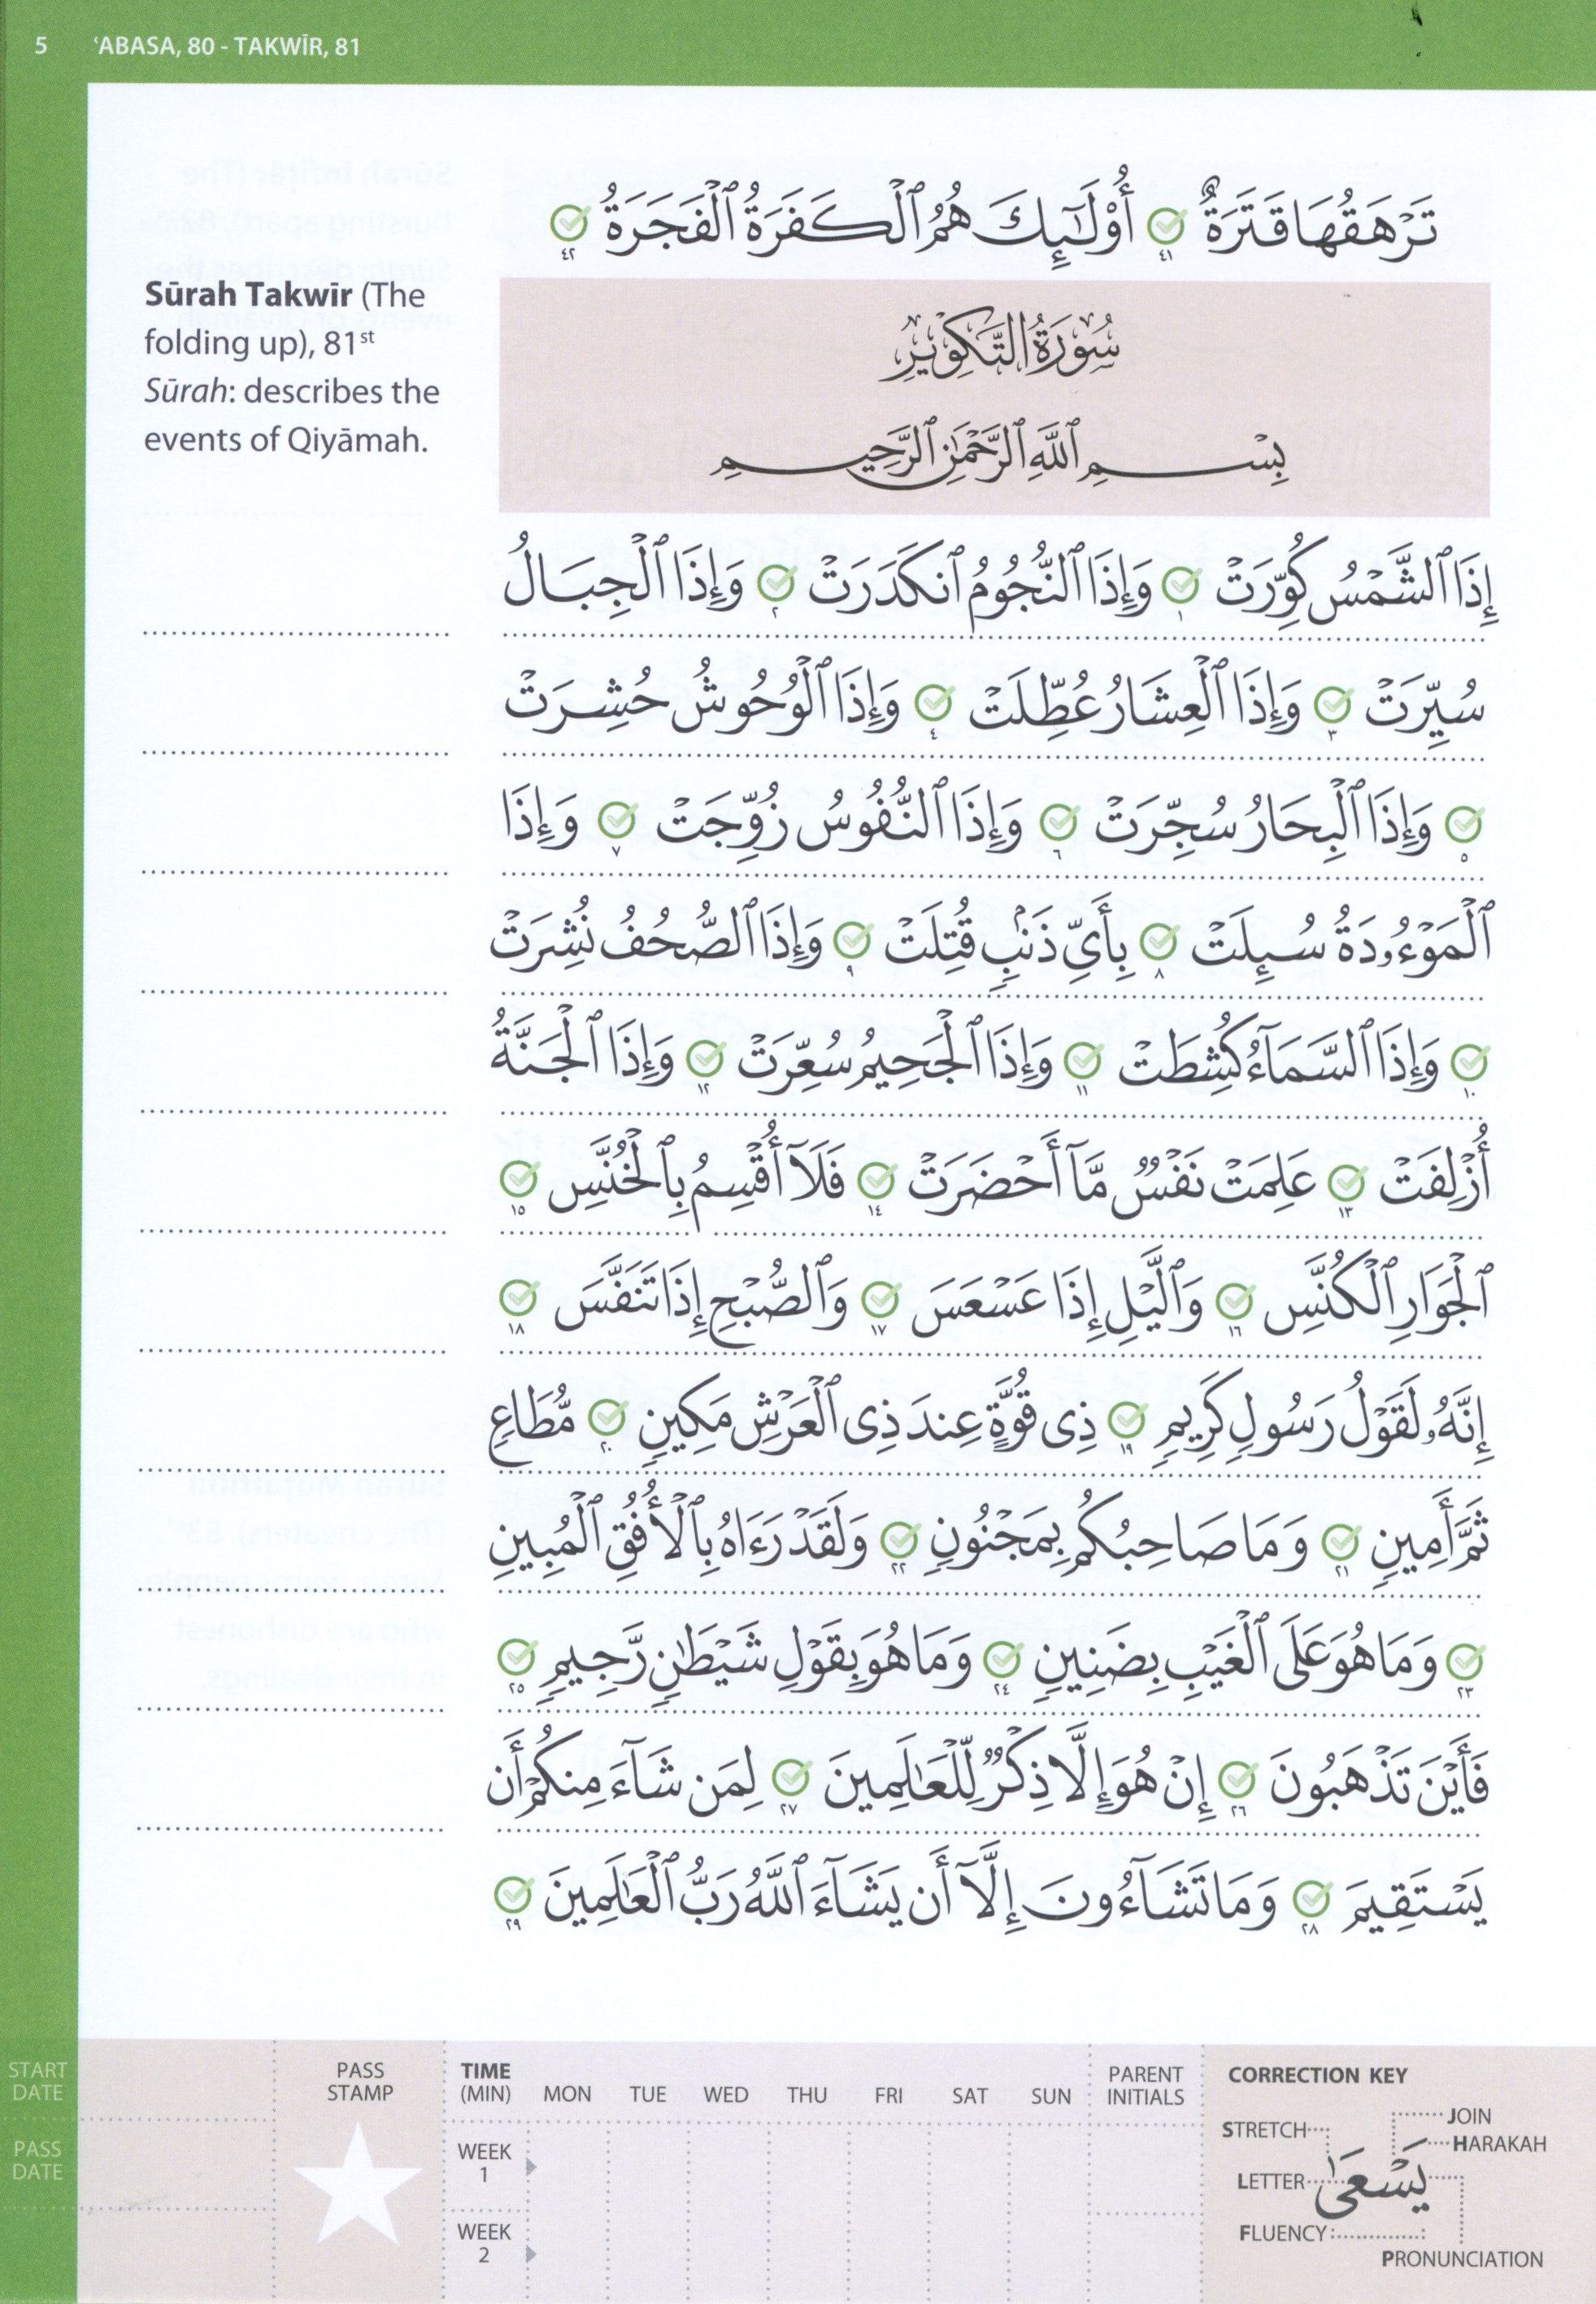 5 ʿABASA, 80 - TAKWĪR, 81
تَرْهَقُهَا قَتَرَةٌ ٤١ أُو۟لَـٰٓئِكَ هُمُ ٱلْكَفَرَةُ ٱلْفَجَرَةُ ٤٢
Sūrah Takwīr (The
folding up), 81st
Sūrah: describes the
events of Qiyāmah.
سُورَةُ التَّكْوِيرِ
بِسْمِ ٱللَّهِ ٱلرَّحْمَـٰنِ ٱلرَّحِيمِ
إِذَا ٱلشَّمْسُ كُوِّرَتْ ١ وَإِذَا ٱلنُّجُومُ ٱنكَدَرَتْ ٢ وَإِذَا ٱلْجِبَالُ
سُيِّرَتْ ٣ وَإِذَا ٱلْعِشَارُ عُطِّلَتْ ٤ وَإِذَا ٱلْوُحُوشُ حُشِرَتْ
٥ وَإِذَا ٱلْبِحَارُ سُجِّرَتْ ٦ وَإِذَا ٱلنُّفُوسُ زُوِّجَتْ ٧ وَإِذَا
ٱلْمَوْءُۥدَةُ سُئِلَتْ ٨ بِأَىِّ ذَنۢبٍ قُتِلَتْ ٩ وَإِذَا ٱلصُّحُفُ نُشِرَتْ
١٠ وَإِذَا ٱلسَّمَآءُ كُشِطَتْ ١١ وَإِذَا ٱلْجَحِيمُ سُعِّرَتْ ١٢ وَإِذَا ٱلْجَنَّةُ
أُزْلِفَتْ ١٣ عَلِمَتْ نَفْسٌ مَّآ أَحْضَرَتْ ١٤ فَلَآ أُقْسِمُ بِٱلْخُنَّسِ ١٥
ٱلْجَوَارِ ٱلْكُنَّسِ ١٦ وَٱلَّيْلِ إِذَا عَسْعَسَ ١٧ وَٱلصُّبْحِ إِذَا تَنَفَّسَ ١٨
إِنَّهُۥ لَقَوْلُ رَسُولٍ كَرِيمٍ ١٩ ذِى قُوَّةٍ عِندَ ذِى ٱلْعَرْشِ مَكِينٍ ٢٠ مُّطَاعٍ
ثَمَّ أَمِينٍ ٢١ وَمَا صَاحِبُكُم بِمَجْنُونٍ ٢٢ وَلَقَدْ رَءَاهُ بِٱلْأُفُقِ ٱلْمُبِينِ
٢٣ وَمَا هُوَ عَلَى ٱلْغَيْبِ بِضَنِينٍ ٢٤ وَمَا هُوَ بِقَوْلِ شَيْطَـٰنٍ رَّجِيمٍ ٢٥
فَأَيْنَ تَذْهَبُونَ ٢٦ إِنْ هُوَ إِلَّا ذِكْرٌ لِّلْعَـٰلَمِينَ ٢٧ لِمَن شَآءَ مِنكُمْ أَن
يَسْتَقِيمَ ٢٨ وَمَا تَشَآءُونَ إِلَّآ أَن يَشَآءَ ٱللَّهُ رَبُّ ٱلْعَـٰلَمِينَ ٢٩
START
DATE
PASS
DATE
PASS
STAMP
TIME
(MIN) MON TUE WED THU FRI SAT SUN
PARENT
INITIALS
WEEK
1
WEEK
2
CORRECTION KEY
STRETCH
JOIN
HARAKAH
LETTER
يَسْعَىٰ
FLUENCY
PRONUNCIATION